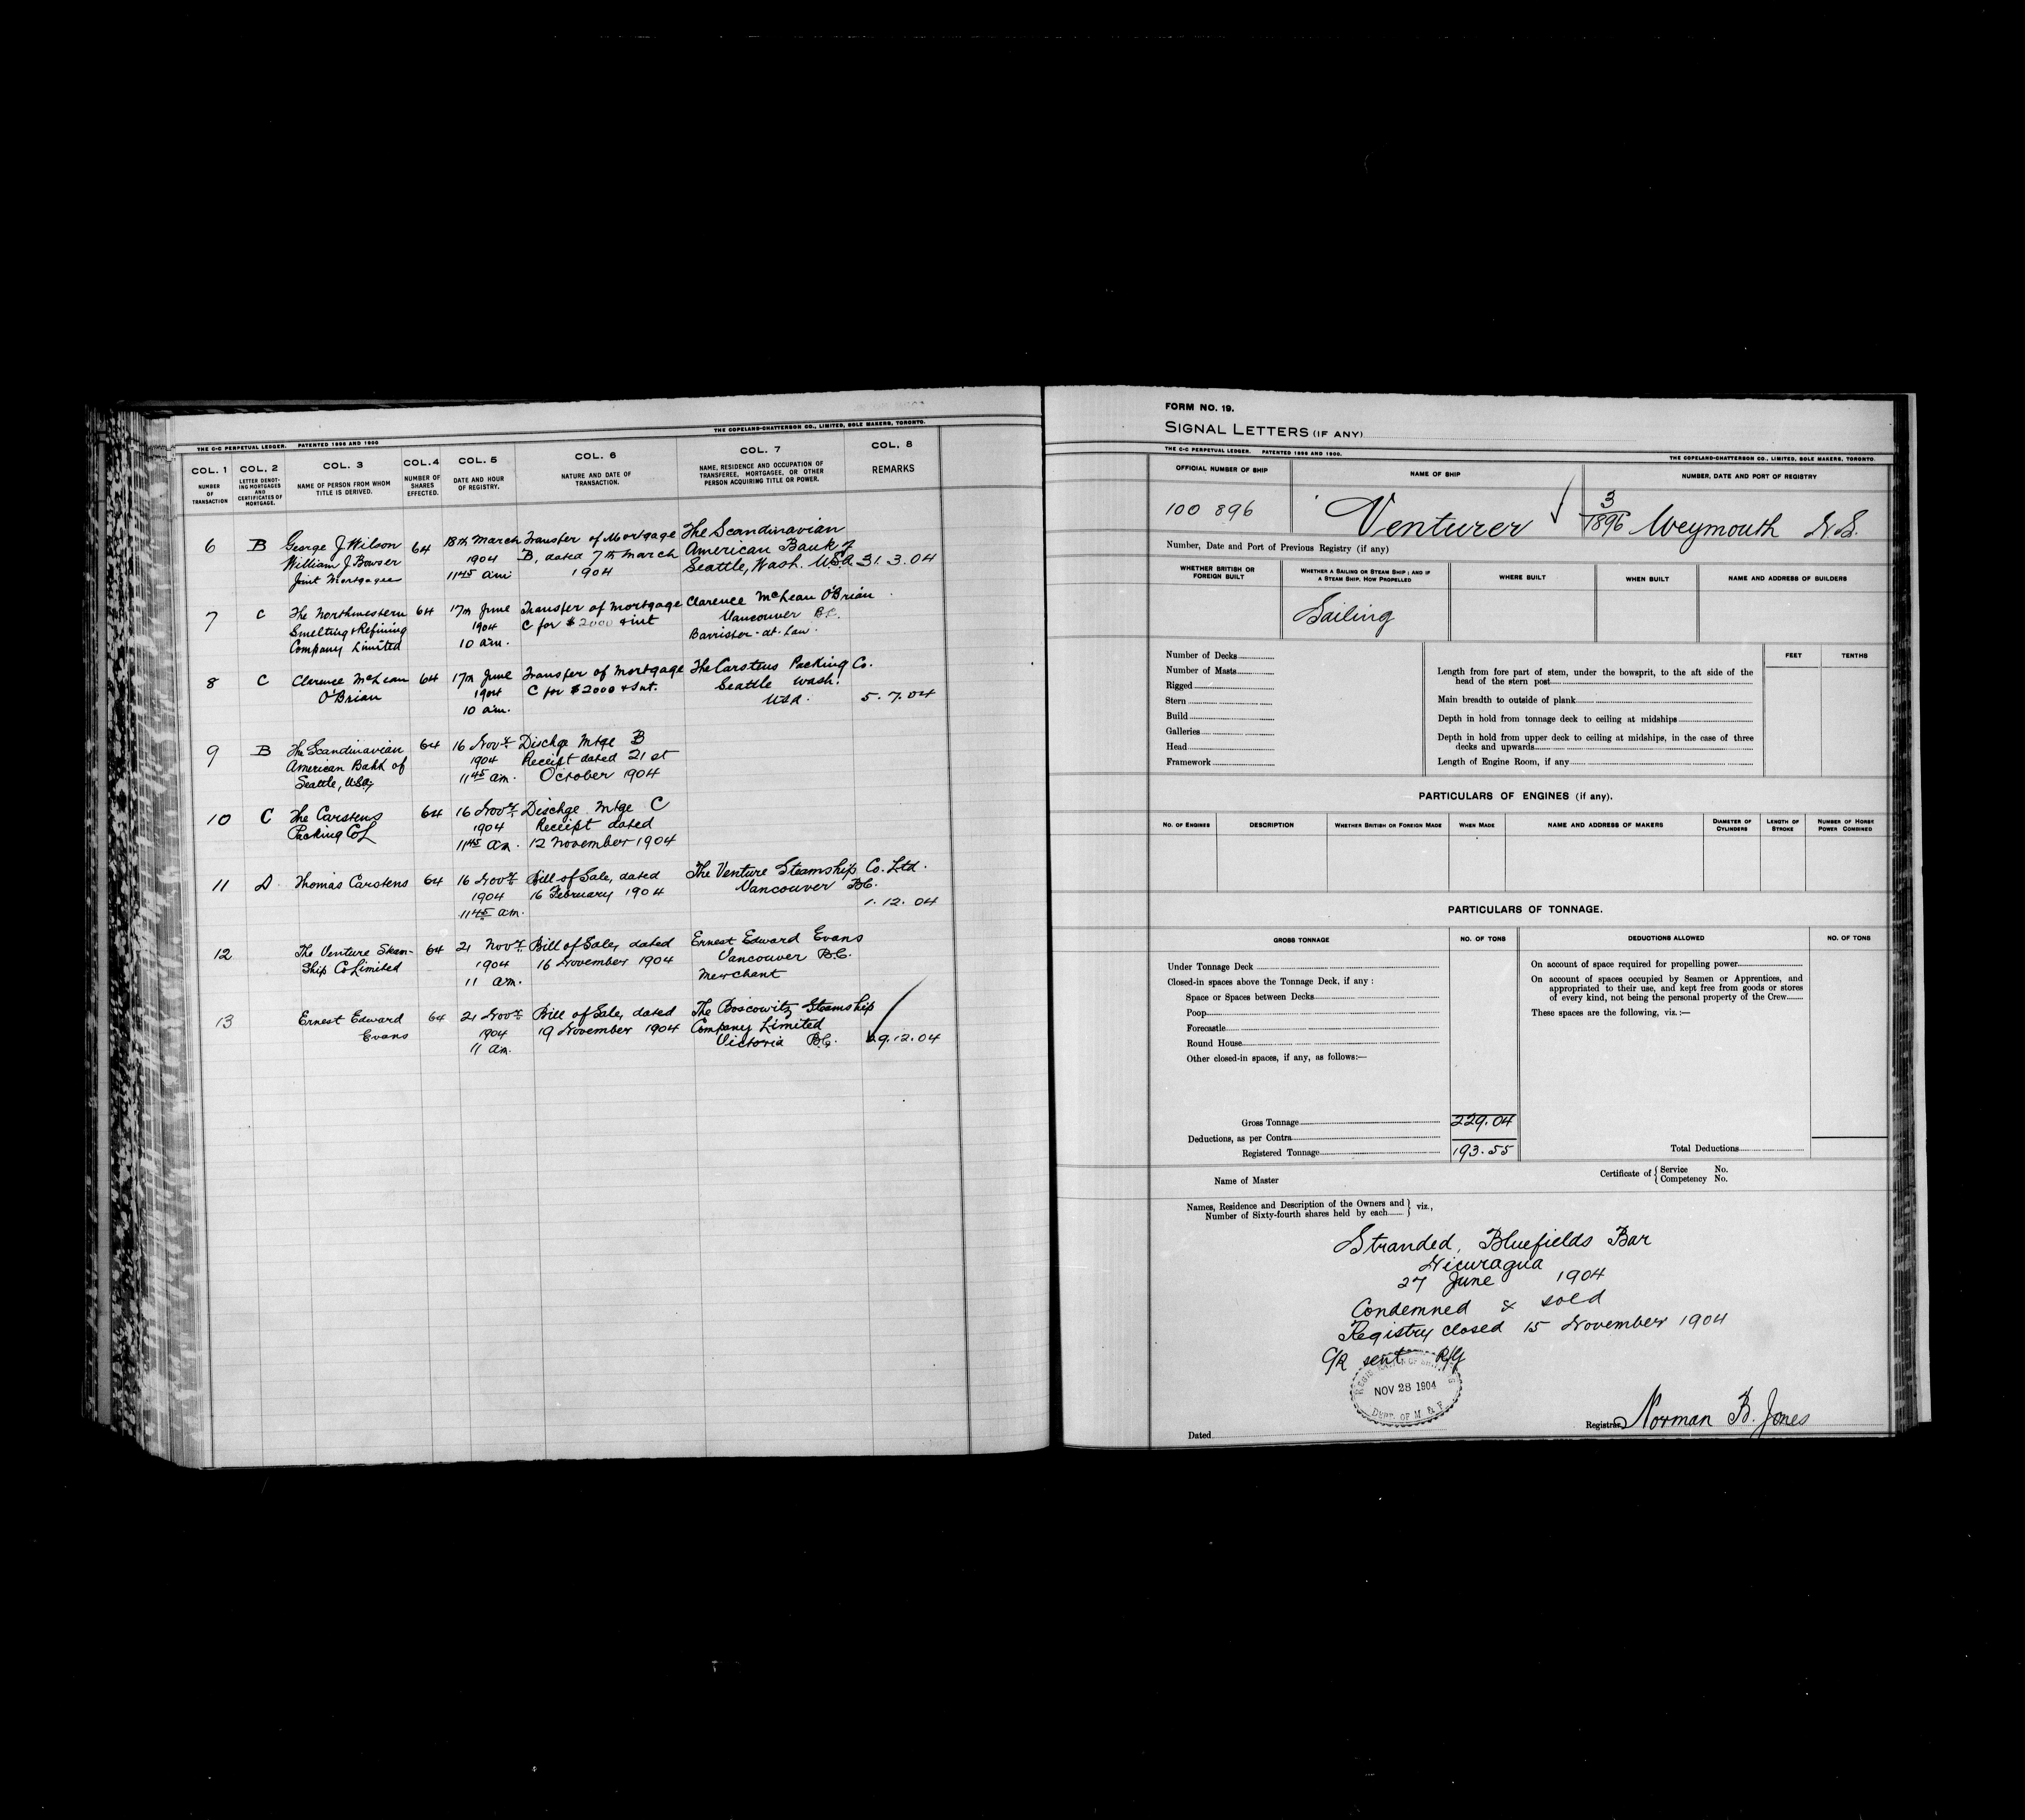 THE C-C PERPETUAL LEDGER. PATENTED 1896 AND 1900
THE COPELAND-CHATTERSON CO., LIMITED, SOLE MAKERS, TORONTO.
COL. 1
NUMBER
OF
TRANSACTION
COL. 2
LETTER DENOT-
ING MORTGAGES
AND
CERTIFICATES OF
MORTGAGE.
COL. 3
NAME OF PERSON FROM WHOM
TITLE IS DERIVED.
COL. 4
NUMBER OF
SHARES
EFFECTED.
COL. 5
DATE AND HOUR
OF REGISTRY.
COL. 6
NATURE AND DATE OF
TRANSACTION.
COL. 7
NAME, RESIDENCE AND OCCUPATION OF
TRANSFEREE, MORTGAGEE, OR OTHER
PERSON ACQUIRING TITLE OR POWER.
COL. 8
REMARKS
6 B George J Wilson 64 18th March Transfer of Mortgage The Scandinavian
William J Bowser 1904 B, dated 7th March American Bank of
Joint Mortgagees 11 45 am 1904 Seattle, Wash. USA 31.3.04
7 C The Northwestern 64 17th June Transfer of mortgage Clarence McLean O'Brian
Smelting & Refining 1904 C for $2000 & int Vancouver B.C.
Company Limited 10 am. Barrister-at-Law.
8 C Clarence McLean 64 17th June Transfer of mortgage The Carstens Packing Co.
O'Brian 1904 C for $2000 & Int. Seattle Wash.
10 am. USA. 5.7.04
9 B The Scandinavian 64 16 Novr Dischge Mtge B
American Bank of 1904 Receipt dated 21st
Seattle, USA, 11 45 am. October 1904
10 C The Carstens 64 16 Novr Dischge. Mtge C
Packing Co L 1904 Receipt dated
11 45 am. 12 November 1904
11 D. Thomas Carstens 64 16 Novr Bill of Sale, dated The Venture Steamship Co. Ltd.
1904 16 February 1904 Vancouver B.C.
11 45 am. 1.12.04
12 The Venture Steam- 64 21 Novr Bill of Sale, dated Ernest Edward Evans
Ship Co Limited 1904 16 November 1904 Vancouver B.C.
11 am. Merchant
13 Ernest Edward 64 21 Novr Bill of Sale, dated The Boscowitz Steamship
Evans 1904 19 November 1904 Company Limited
11 am. Victoria B.C. 29.12.04
FORM NO. 19.
SIGNAL LETTERS (IF ANY)
THE C-C PERPETUAL LEDGER. PATENTED 1896 AND 1900.
THE COPELAND-CHATTERSON CO., LIMITED, SOLE MAKERS, TORONTO.
OFFICIAL NUMBER OF SHIP
NAME OF SHIP
NUMBER, DATE AND PORT OF REGISTRY
100 896 Venturer 3/1896 Weymouth N.S.
Number, Date and Port of Previous Registry (if any)
WHETHER BRITISH OR
FOREIGN BUILT
WHETHER A SAILING OR STEAM SHIP; AND IF
A STEAM SHIP, HOW PROPELLED
WHERE BUILT
WHEN BUILT
NAME AND ADDRESS OF BUILDERS
Sailing
Number of Decks
Number of Masts
Rigged
Stern
Build
Galleries
Head
Framework
FEET TENTHS
Length from fore part of stem, under the bowsprit, to the aft side of the
head of the stern post
Main breadth to outside of plank
Depth in hold from tonnage deck to ceiling at midships
Depth in hold from upper deck to ceiling at midships, in the case of three
decks and upwards
Length of Engine Room, if any
PARTICULARS OF ENGINES (if any).
NO. OF ENGINES
DESCRIPTION
WHETHER BRITISH OR FOREIGN MADE
WHEN MADE
NAME AND ADDRESS OF MAKERS
DIAMETER OF
CYLINDERS
LENGTH OF
STROKE
NUMBER OF HORSE
POWER COMBINED
PARTICULARS OF TONNAGE.
GROSS TONNAGE
NO. OF TONS
DEDUCTIONS ALLOWED
NO. OF TONS
Under Tonnage Deck
Closed-in spaces above the Tonnage Deck, if any :
Space or Spaces between Decks
Poop
Forecastle
Round House
Other closed-in spaces, if any, as follows:—
Gross Tonnage 229.04
Deductions, as per Contra
Registered Tonnage 193.55
On account of space required for propelling power
On account of spaces occupied by Seamen or Apprentices, and
appropriated to their use, and kept free from goods or stores
of every kind, not being the personal property of the Crew
These spaces are the following, viz.:—
Total Deductions
Name of Master
Certificate of { Service No.
Competency No.
Names, Residence and Description of the Owners and } viz.,
Number of Sixty-fourth shares held by each
Stranded, Bluefields Bar
Nicuragua
27 June 1904
Condemned & sold
Registry closed 15 November 1904
C/R sent R/G
NOV 28 1904
DEPT. OF M. & F.
Dated
Registrar Norman B. Jones